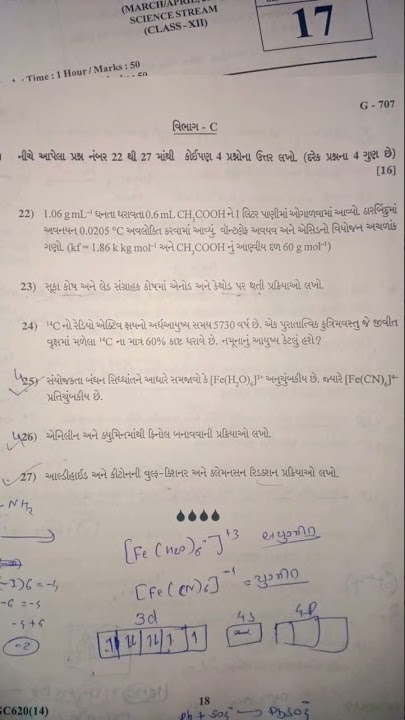 (MARCH/APRIL,
SCIENCE STREAM
(CLASS-XII)
17
Time : 1 Hour / Marks : 50
G - 707
વિભાગ - C
નીચે આપેલા પ્રશ્ન નંબર 22 થી 27 માંથી કોઈપણ 4 પ્રશ્નોના ઉત્તર લખો. (દરેક પ્રશ્નના 4 ગુણ છે)
[16]
22) 1.06 g mL⁻¹ ઘનતા ધરાવતા 0.6 mL CH₃COOH ને 1 લિટર પાણીમાં ઓગાળવામાં આવ્યો. ઠારબિંદુમાં
અવનયન 0.0205 °C અવલોકિત કરવામાં આવ્યું. વૉન્ટહૉફ અવયવ અને એસિડનો વિયોજન અચળાંક
ગણો. (kf = 1.86 k kg mol⁻¹ અને CH₃COOH નું આણ્વીય દળ 60 g mol⁻¹)
23) સૂકા કોષ અને લેડ સંગ્રાહક કોષમાં એનોડ અને કેથોડ પર થતી પ્રક્રિયાઓ લખો.
24) ¹⁴C નો રેડિયો એક્ટિવ ક્ષયનો અર્ધઆયુષ્ય સમય 5730 વર્ષ છે. એક પુરાતાત્વિક કૃત્રિમવસ્તુ જે જીવીત
વૃક્ષમાં મળેલા ¹⁴C ના માત્ર 60% કાષ્ટ ધરાવે છે. નમૂનાનું આયુષ્ય કેટલું હશે?
25) સંયોજકતા બંધન સિધ્ધાંતને આધારે સમજાવો કે [Fe(H₂O)₆]³⁺ અનુચુંબકીય છે. જ્યારે [Fe(CN)₆]⁴⁻
પ્રતિચુંબકીય છે.
26) એનિલીન અને ક્યુમિનમાંથી ફિનોલ બનાવવાની પ્રક્રિયાઓ લખો.
27) આલ્ડીહાઈડ અને કીટોનની વુલ્ફ-કિશનર અને ક્લેમનસન રિડક્શન પ્રક્રિયાઓ લખો.
- NH₂
[Fe(H₂O)₆]⁺³ અયુગ્મીત
[Fe(CN)₆]⁻⁴ = યુગ્મીત
-3)6 = -4
-6 = -4
-4+6
-2
3d 4s 4P
18
GC620(14)
Pb + SO₄²⁻ → PbSO₄